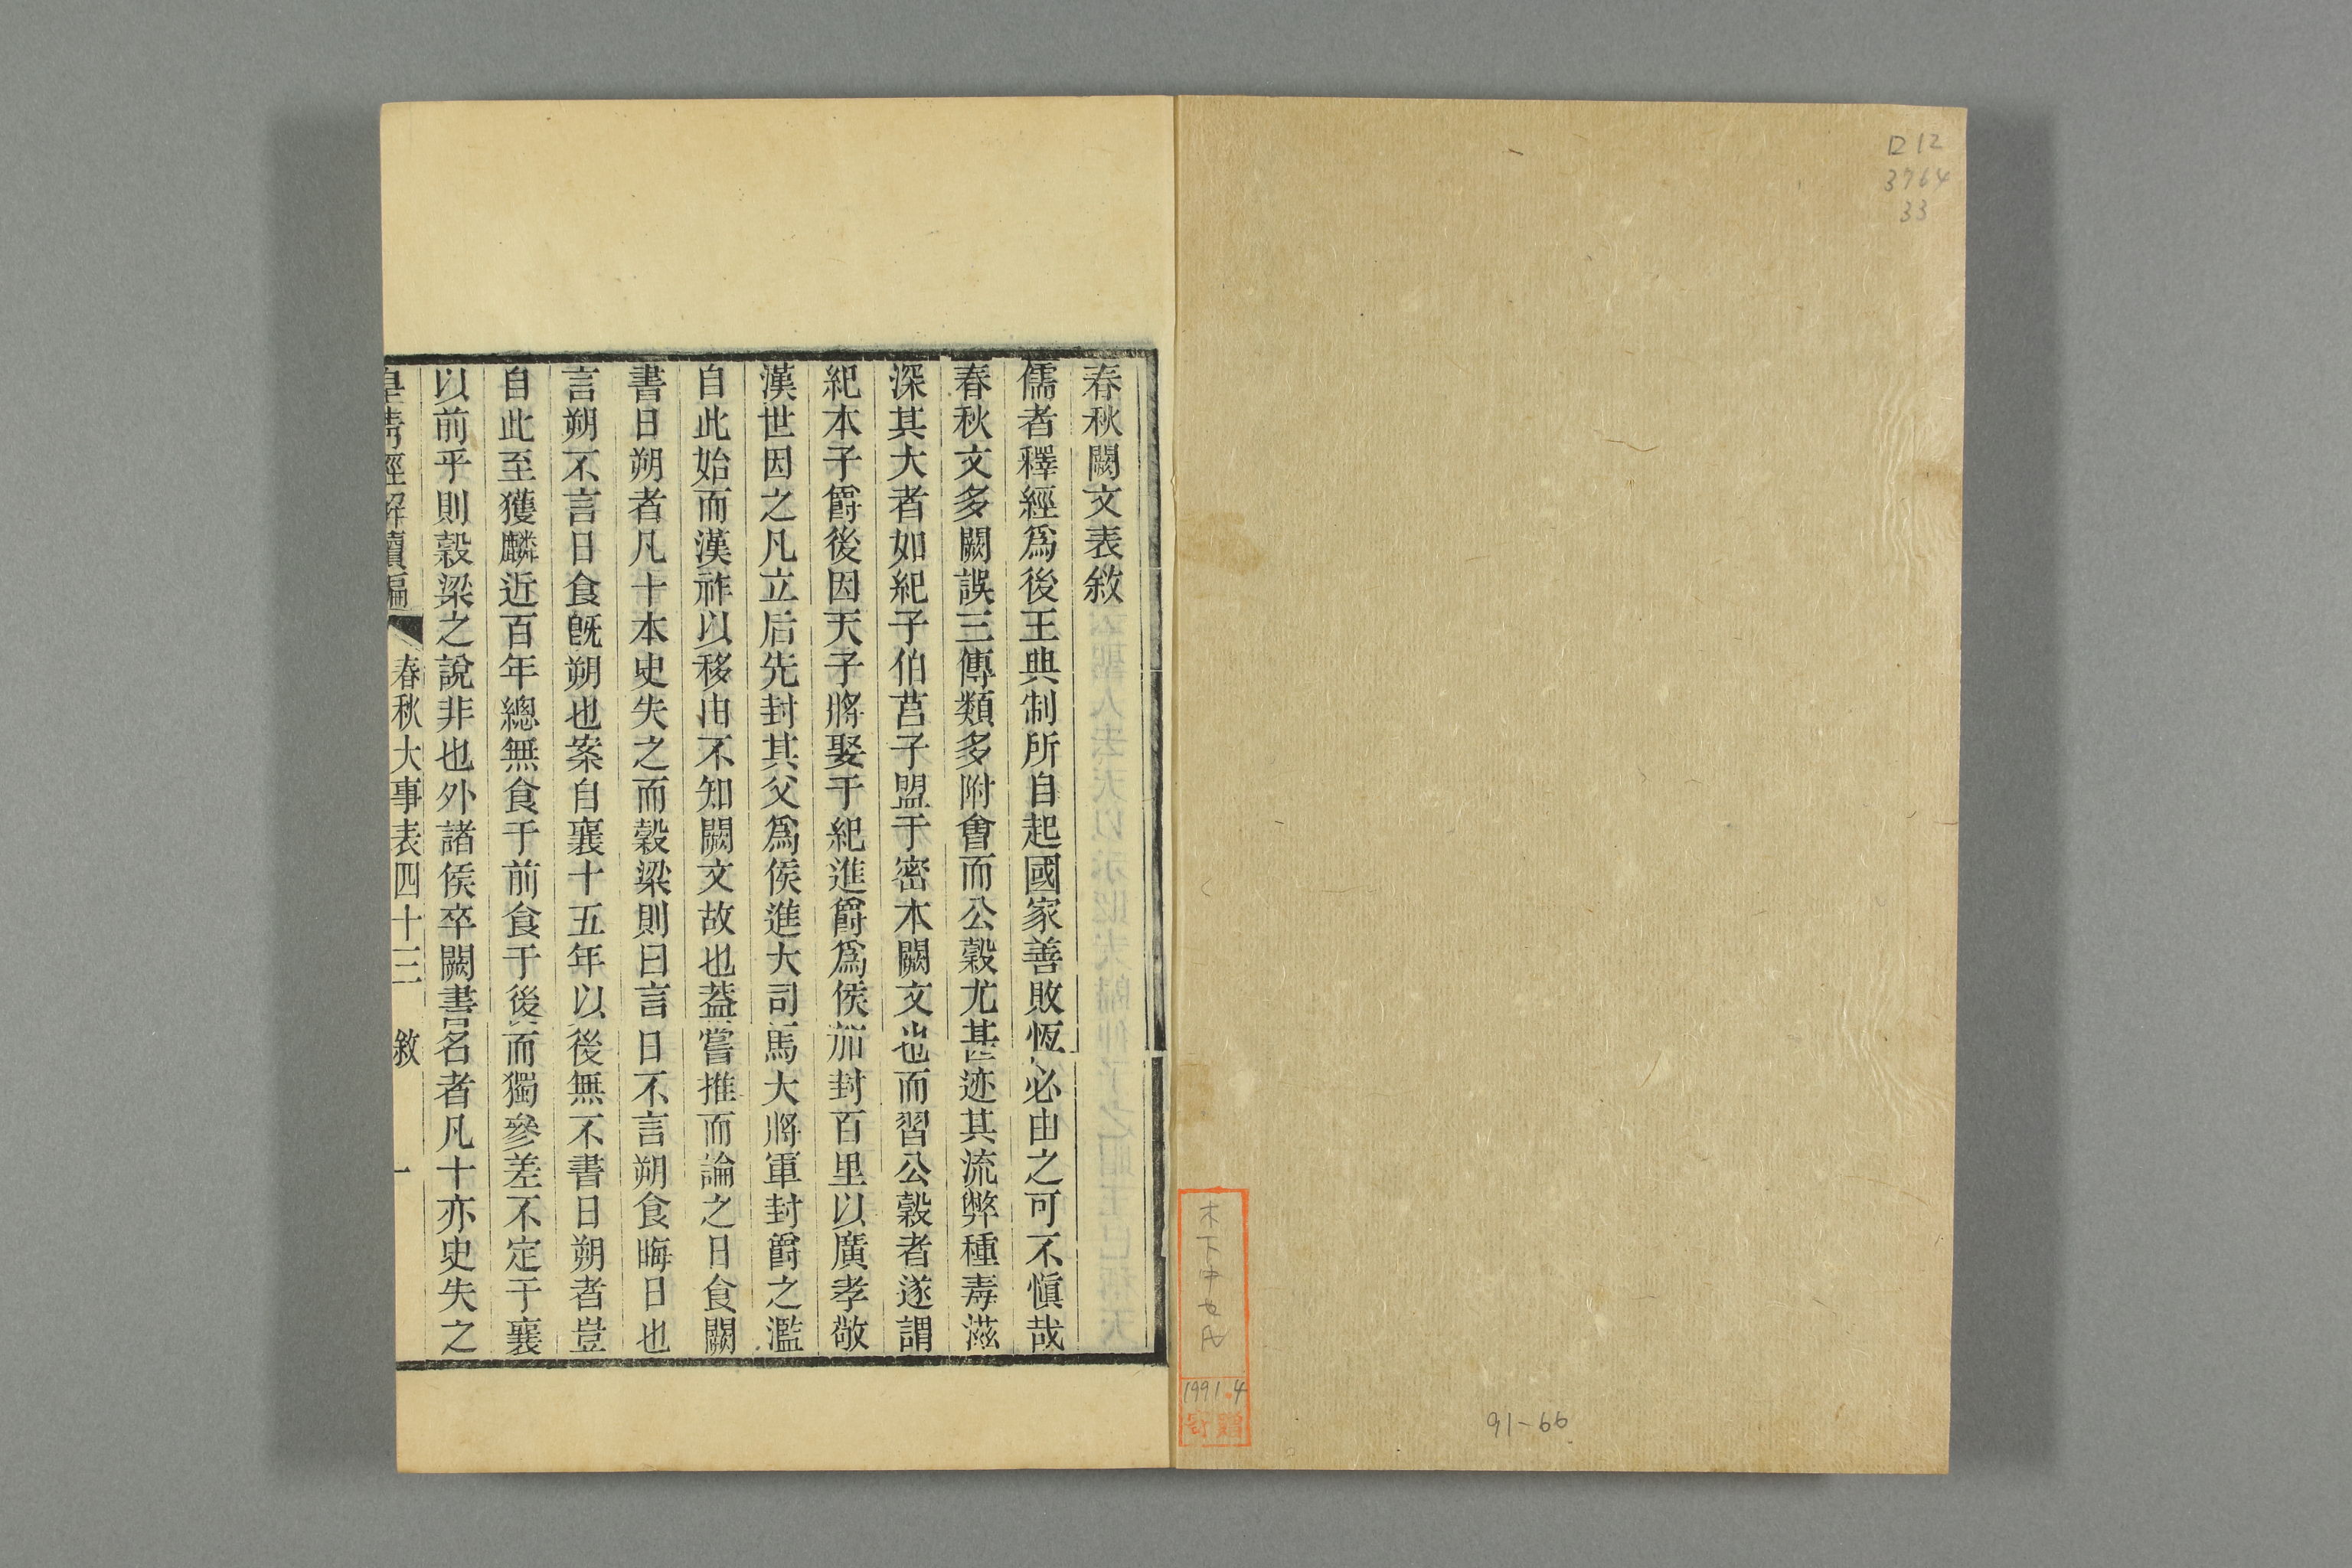 D12
3764
33
木下中せ氏
1991.4
寄贈
91-66
春秋闕文表敘
儒者釋經爲後王典制所自起國家善敗恆必由之可不愼哉
春秋文多闕誤三傳類多附會而公穀尤甚迹其流弊種毒滋
深其大者如紀子伯莒子盟于密本闕文也而習公穀者遂謂
紀本子爵後因天子將娶于紀進爵爲侯加封百里以廣孝敬
漢世因之凡立后先封其父爲侯進大司馬大將軍封爵之濫
自此始而漢祚以移由不知闕文故也葢嘗推而論之日食闕
書日朔者凡十本史失之而穀梁則曰言日不言朔食晦日也
言朔不言日食旣朔也案自襄十五年以後無不書日朔者豈
自此至獲麟近百年總無食于前食于後而獨參差不定于襄
以前乎則穀梁之說非也外諸侯卒闕書名者凡十亦史失之
皇淸經解續編 春秋大事表四十三 敘 一